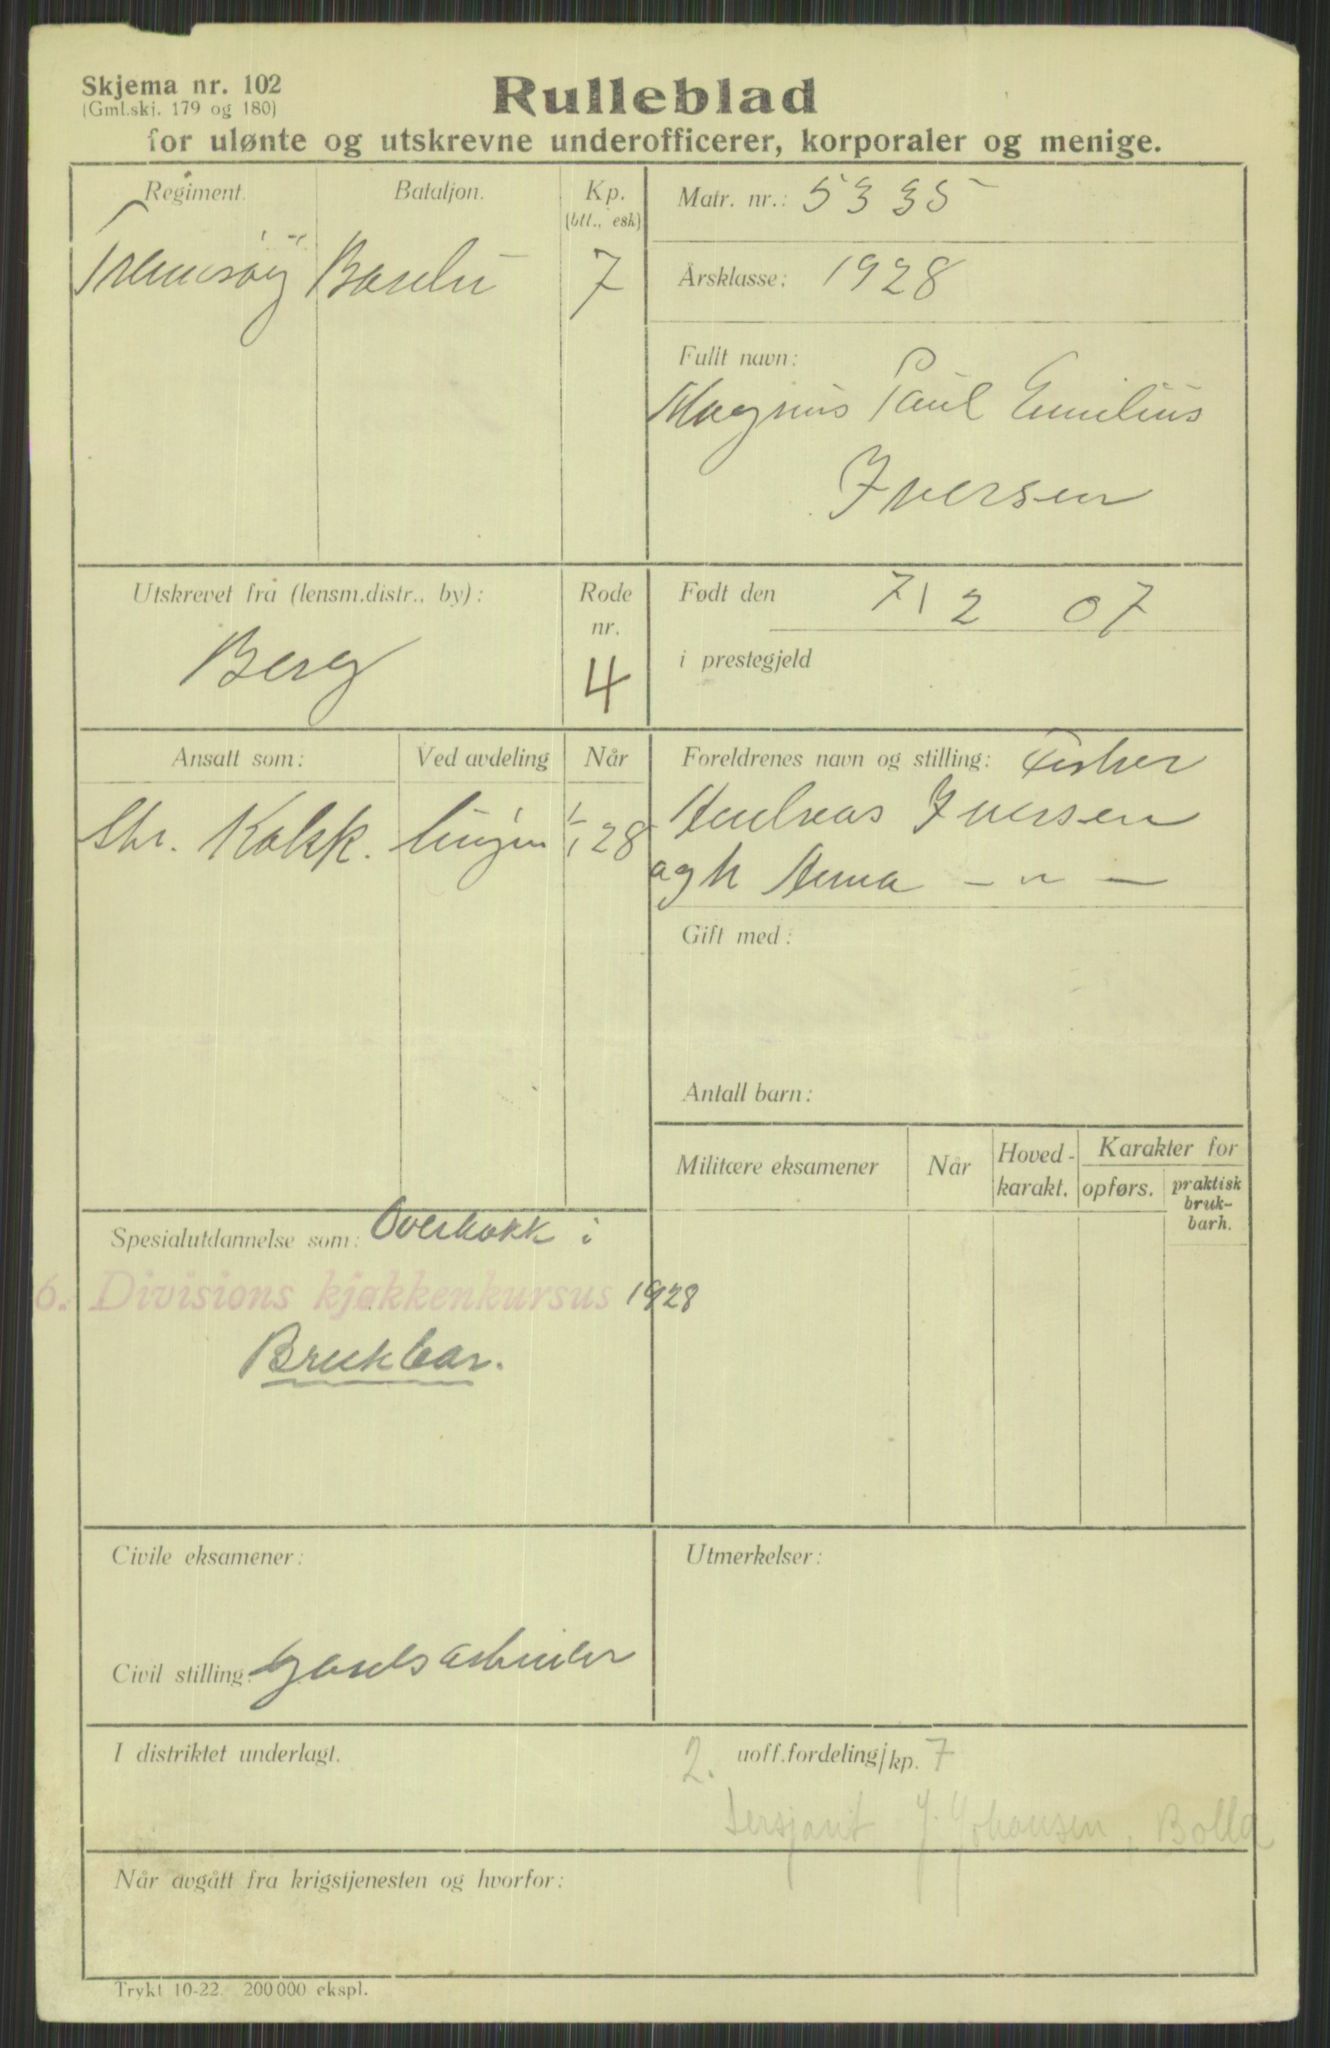 Skjema nr. 102
(Gml.skj. 179 og 180)
Rulleblad
for ulønte og utskrevne underofficerer, korporaler og menige.
Regiment. Bataljon. Kp. (btt., esk)
7
Matr. nr.: 5335
Årsklasse: 1928
Fullt navn:
Magnus Paul Emilius
Iversen
Utskrevet fra (lensm.distr., by):
Berg
Rode nr.
4
Født den 7/2 07
i prestegjeld
Ansatt som: Ved avdeling Når
Str. Kokk. linjen 1/1 28
Foreldrenes navn og stilling: Fisker
Andreas Iversen
og h Anna – " –
Gift med:
Antall barn:
Militære eksamener Når Hoved-karakt. Karakter for opførs. praktisk bruk-barh.
Spesialutdannelse som: Overkokk i
6. Divisions kjøkkenkursus 1928
Brukbar.
Civile eksamener:
Civil stilling: Gaardsarbeider
Utmerkelser:
I distriktet underlagt.
2. uoff.fordeling/kp. 7
Sersjant J. Johansen, Bolla
Når avgått fra krigstjenesten og hvorfor:
Trykt 10-22. 200000 ekspl.